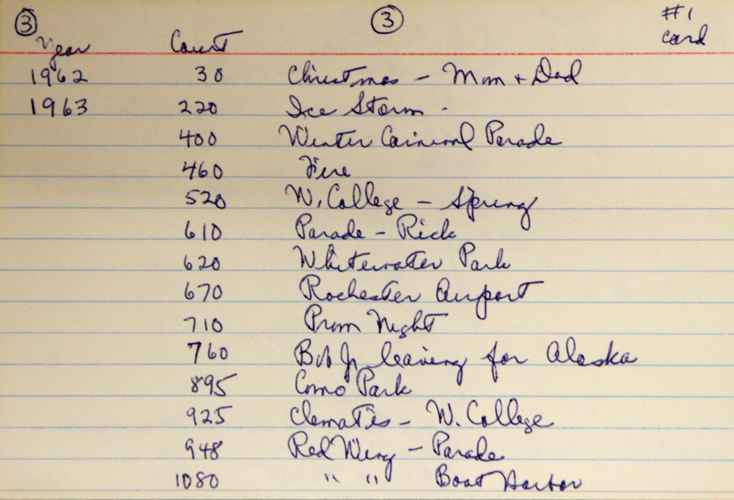 ③ ③ #1
Year Count card
1962 30 Christmas - Mom + Dad
1963 220 Ice Storm -
400 Winter Carnival Parade
460 Fire
520 W. College - Spring
610 Parade - Rick
620 Whitewater Park
670 Rochester Airport
710 Prom Night
760 Bob Jr leaving for Alaska
895 Como Park
925 Clematis - W. College
948 Red Wing - Parade
1080 " " Boat Harbor